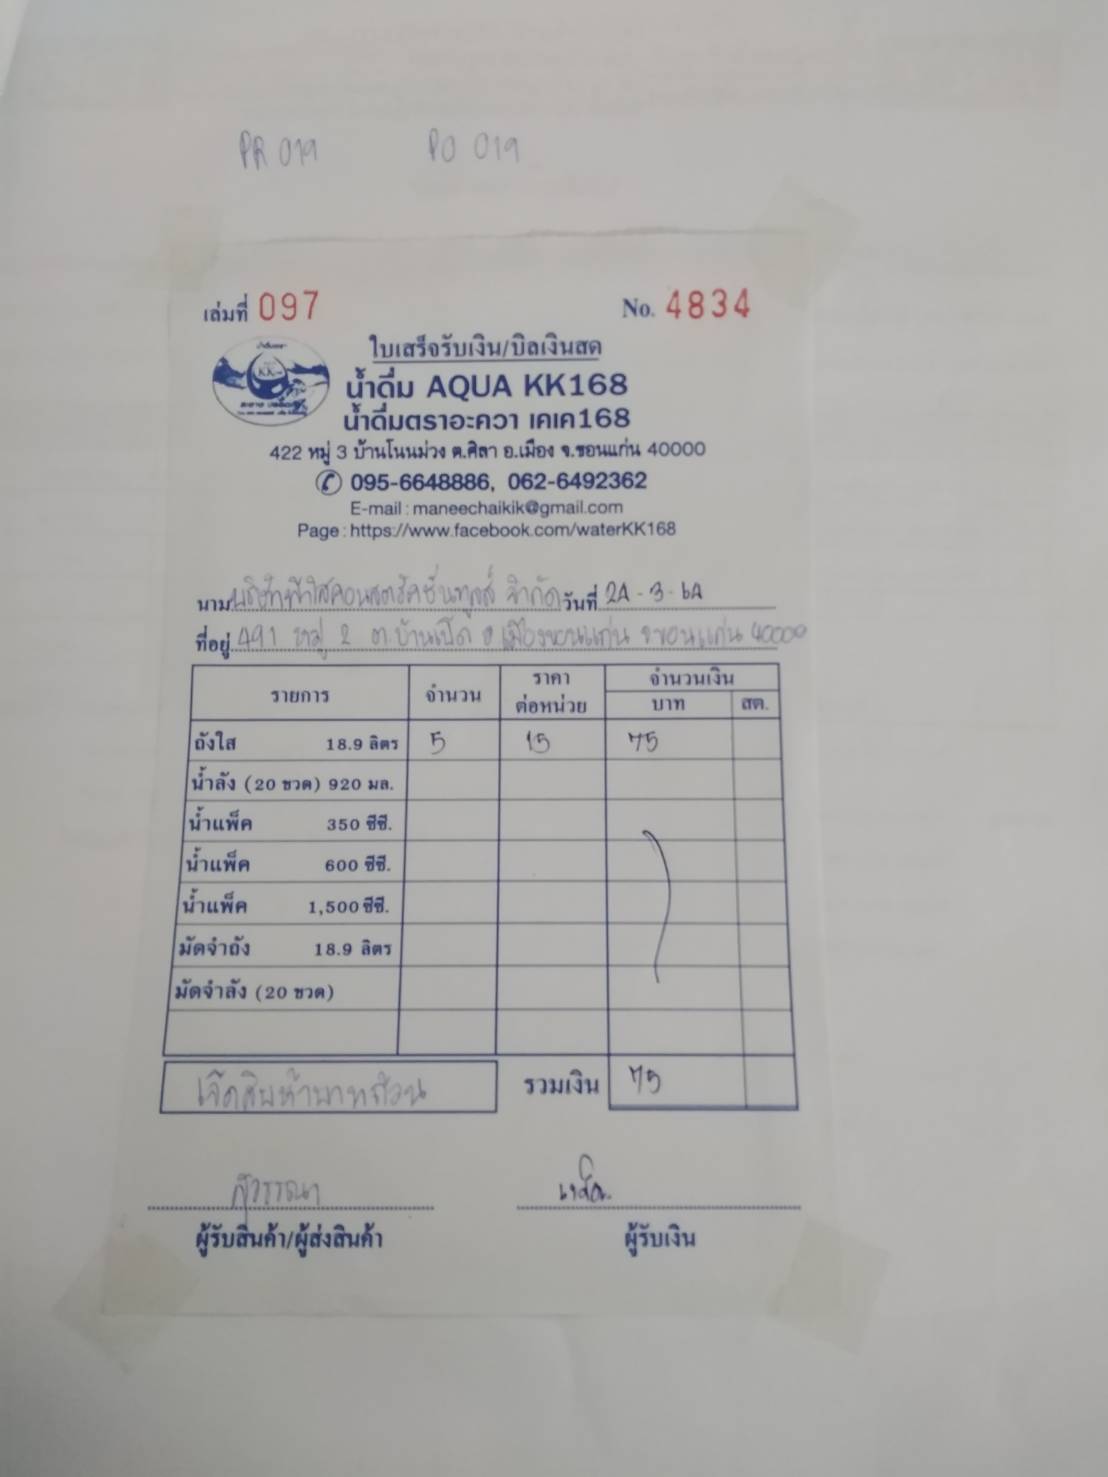 PR 019 PO 019
เล่มที่ 097 No. 4834
ใบเสร็จรับเงิน/บิลเงินสด
น้ำดื่ม AQUA KK168
น้ำดื่มตราอะควา เคเค168
422 หมู่ 3 บ้านโนนม่วง ต.ศิลา อ.เมือง จ.ขอนแก่น 40000
095-6648886, 062-6492362
E-mail : maneechaikik@gmail.com
Page : https://www.facebook.com/waterKK168
นาม บริษัทฟ้าใสคอนสตรัคชั่นทูลส์ จำกัด วันที่
ที่อยู่ 491 หมู่ 2 ต.บ้านเป็ด อ.เมืองขอนแก่น จ.ขอนแก่น 40000
รายการ จำนวน ราคา ต่อหน่วย จำนวนเงิน
บาท สต.
ถังใส 18.9 ลิตร 5 15 75
น้ำลัง (20 ขวด) 920 มล.
น้ำแพ็ค 350 ซีซี.
น้ำแพ็ค 600 ซีซี.
น้ำแพ็ค 1,500 ซีซี.
มัดจำถัง 18.9 ลิตร
มัดจำลัง (20 ขวด)
เจ็ดสิบห้าบาทถ้วน รวมเงิน 75
สุวรรณา
ผู้รับสินค้า/ผู้ส่งสินค้า ผู้รับเงิน